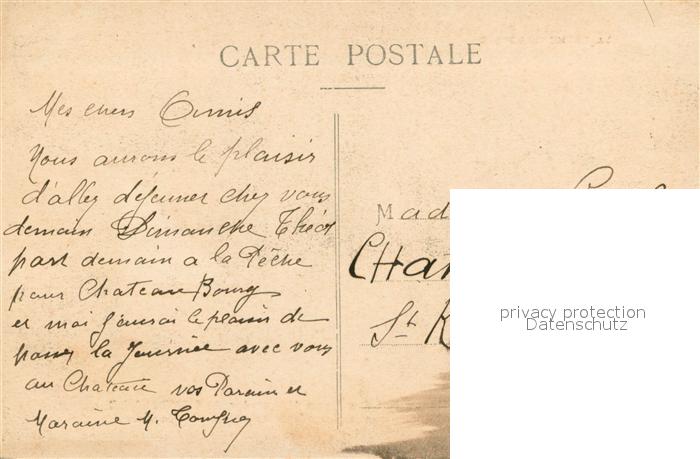 CARTE POSTALE
Mes chers Amis
Nous aurons le plaisir
d'allez déjeuner chez vous
demain Dimanche Théo
part demain a la Pêche
pour Chateau Bourg
et moi j'aurai le plaisir de
passez la Journée avec vous
au Chateau vos Parain et
Maraine M.
Mad
CHA
St
privacy protection
Datenschutz